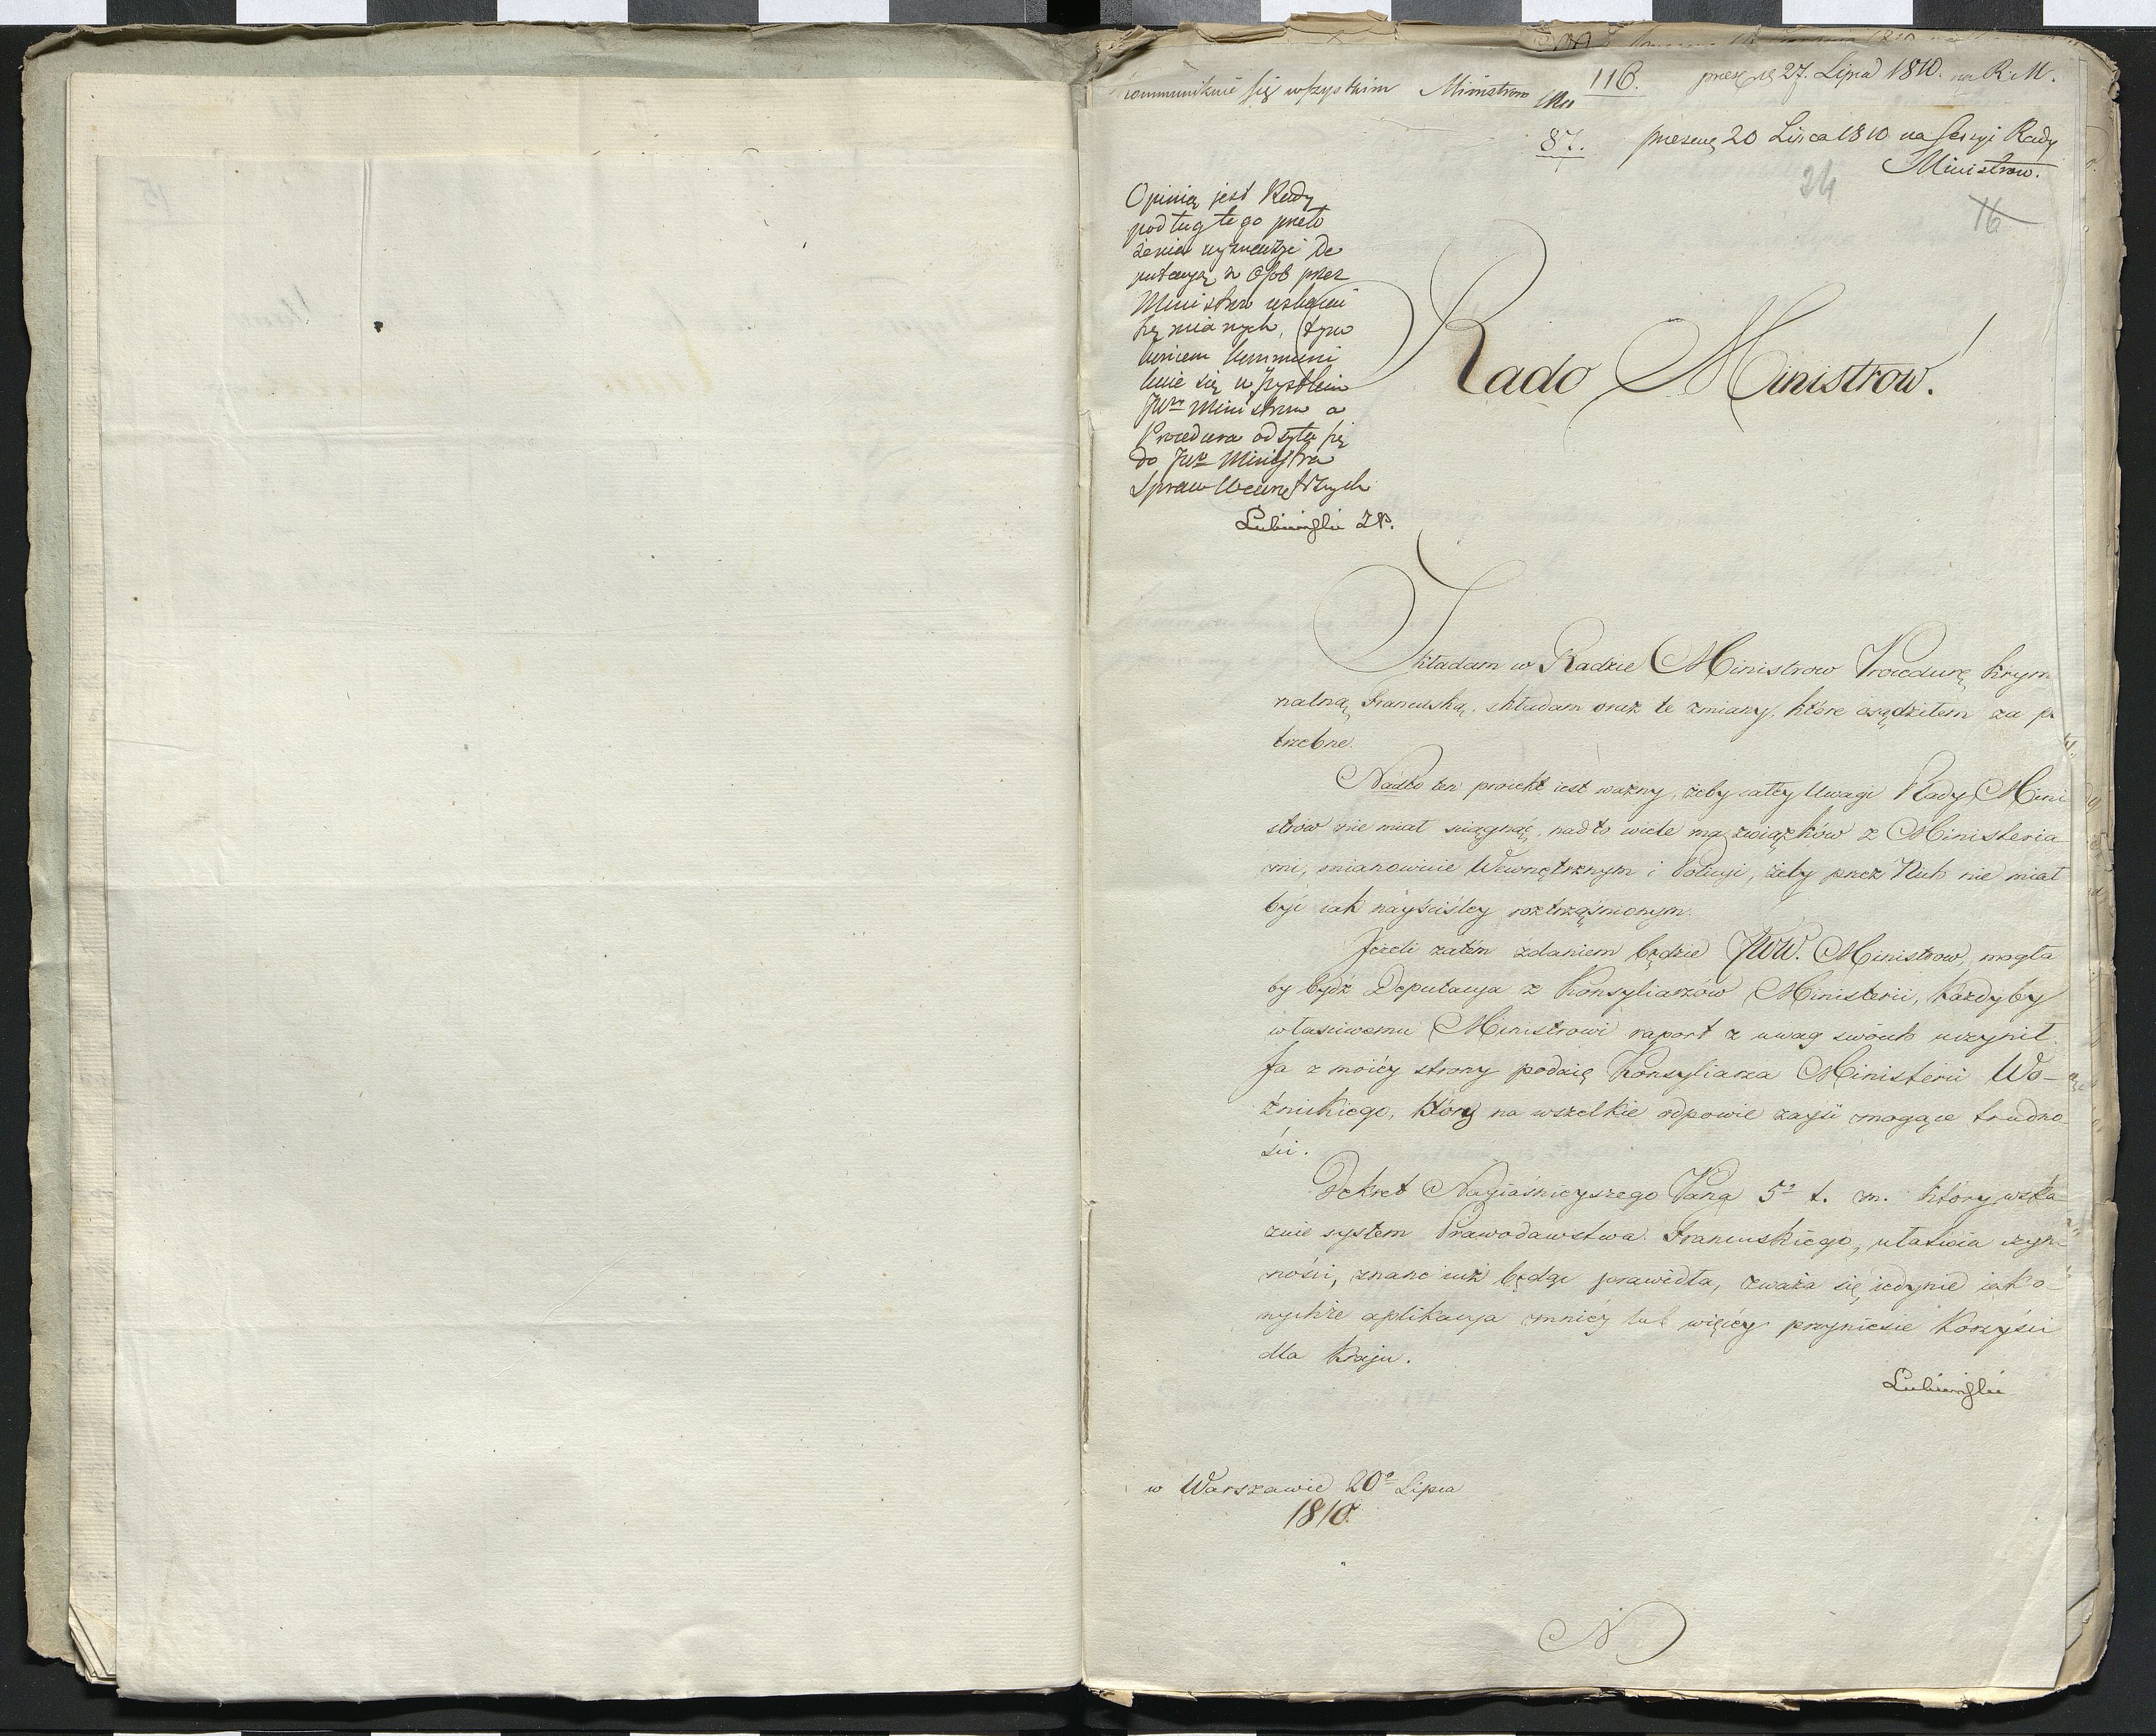 kommunikuie się wszystkim Ministrom
116. prez. 27. Lipca 1810. na R. M.
87. prezen. 20 Lipca 1810 na Sessyi Rady
Ministrow.
24
16
Opinią jest Rady
podług tego przeło
żenia wyznaczyć De
putacyą z Osob przez
Ministrow
się mianych, tym
końcem kommuni
kuie się wszystkim
JWm Ministrom a
Procedura odsyła się
do JWo Ministra
Spraw Wewnętrznych
Lubieński ZP.
Rado Ministrow!
Składam w Radzie Ministrow Procedurę krym
nalną Francuską, składam oraz te zmiany, które osądziłem za po
trzebne.
Nadto ten proiekt iest ważny, żeby całey Uwagi Rady Mini
strów nie miał sciągnąć, nadto wiele ma związków z Ministeria
mi, mianowicie Wewnętrznym i Policyi, żeby przez Nich nie miał
być iak nayściśley roztrząśnionym.
Jeżeli zatém zdaniem będzie JWW. Ministrow, mogła
by bydź Deputacya z Konsyliarzów Ministerii, każdy by
właściwemu Ministrowi raport z uwag swoich uczynił.
Ja z moiéy strony podaię Konsyliarza Ministerii Wo-
źnickiego, który na wszelkie odpowie zayść mogące trudno
ści.
Dekret Nayiaśnieyszego Pana 5o t. m. który wska
zuie system Prawodawstwa Francuskiego, ułatwia czyn
ności, znane iuż będąc prawidła, zważa się iedynie iako
nychże aplikacya mniéy lub więcéy przyniesie korzyści
dla Kraju.
Lubieński
w Warszawie 20o Lipca
1810.
N